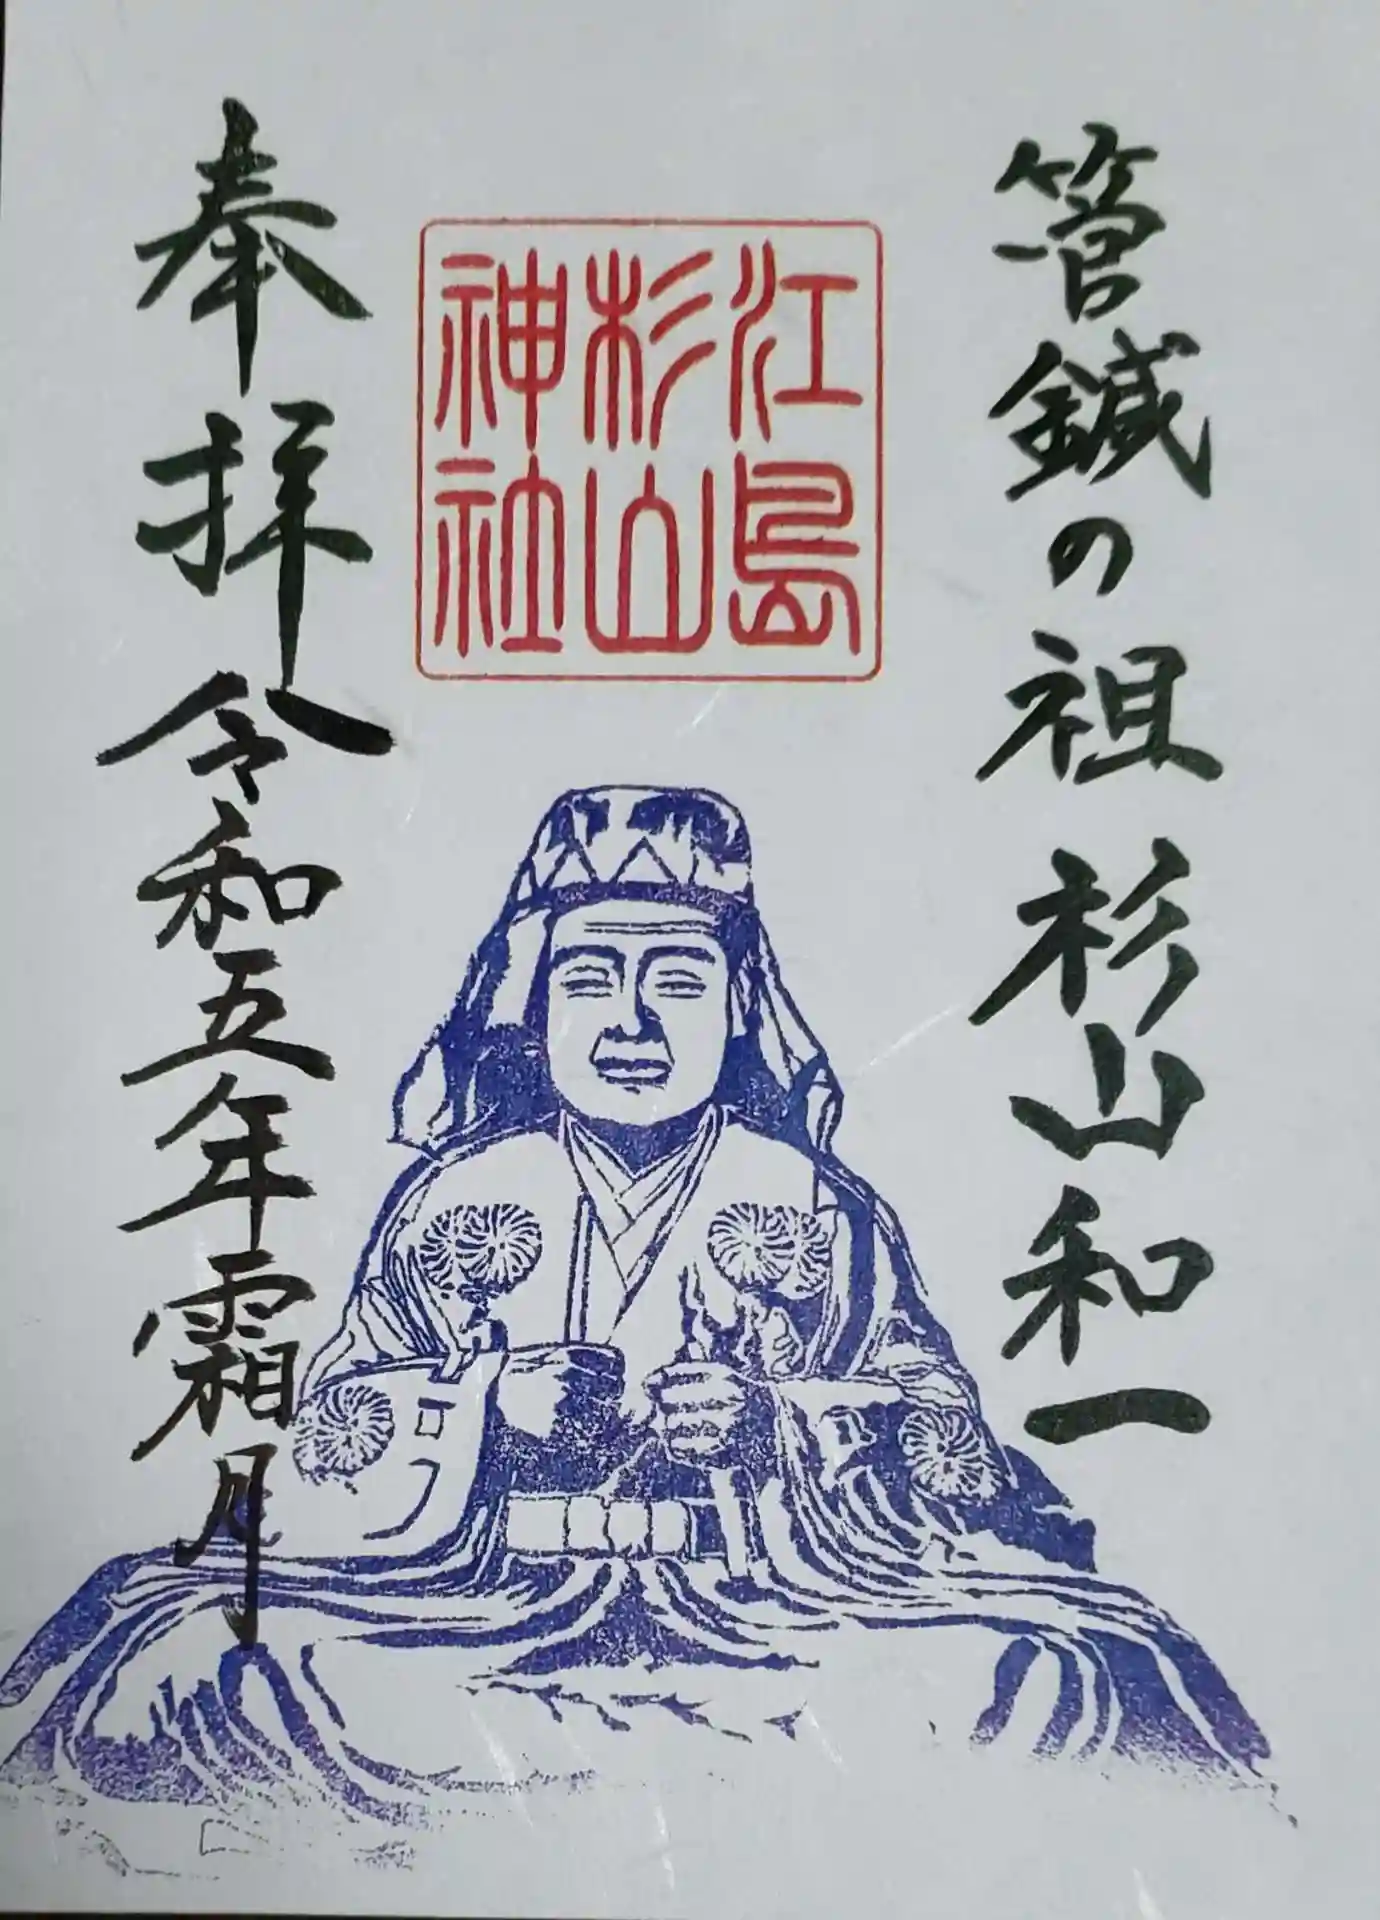 管鍼の祖 杉山和一
江島
杉山
神社
奉拝 令和五年霜月